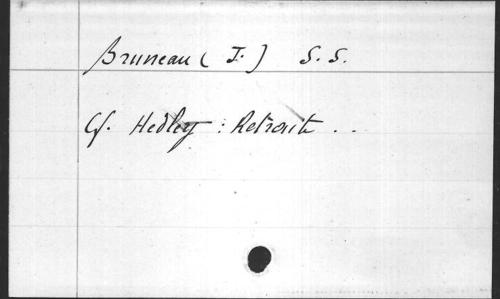 Bruneau ( J. ) S. S.
Cf. Hedley : Retraite . .